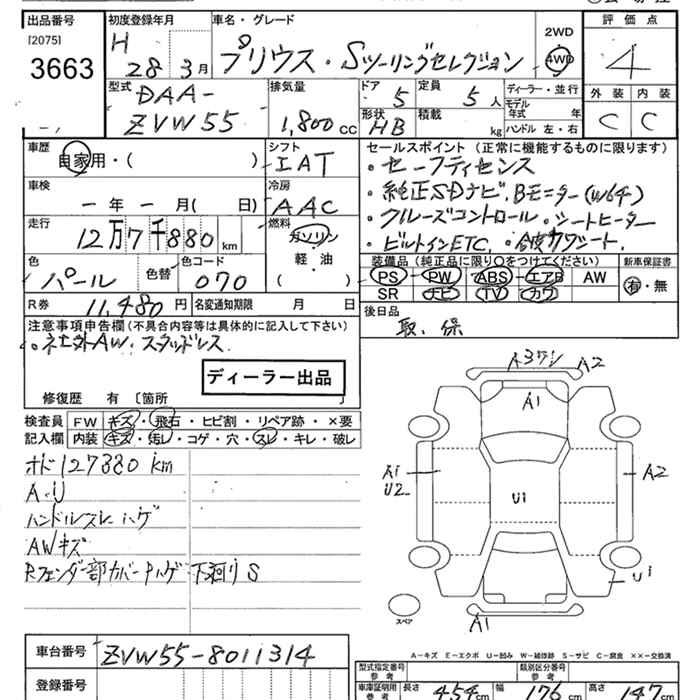 出品番号
[2075]
3663
初度登録年月
H 28年 3月
車名・グレード
プリウス・Sツーリングセレクション
2WD
4WD
評価点
4
外装 内装
C C
型式
DAA-
ZVW55
排気量
1,800cc
ドア
5
定員
5人
形状
HB
積載
kg
ディーラー・並行
モデル年式 年
ハンドル 左・右
車歴
自家用・( )
シフト
IAT
車検
-年-月( 日)
冷房
AAC
走行
12万7千880km
燃料
ガソリン
軽・油
( )
色
パール
色替
色コード
070
R券
11,480円
名変通知期限 月 日
セールスポイント(正常に機能するものに限ります)
・セーフティセンス
・純正SDナビ.Bモニター(W64)
・クルーズコントロール・シートヒーター
・ビルトインETC.・合皮シート.
装備品(純正品に限り○をつけてください)
PS・PW・ABS・エアB AW
SR ナビ・TV・カワ
新車保証書
有・無
後日品
取.保
注意事項申告欄(不具合内容等は具体的に記入して下さい)
・社外AW.スタッドレス
ディーラー出品
修復歴 有〔箇所 〕
検査員記入欄
FW キズ・飛石・ヒビ割・リペア跡・×要
内装 キズ・汚レ・コゲ・穴・スレ・キレ・破レ
オド127880km
A.U
ハンドルスレハゲ
AWキズ
Rフェンダー部カバーPハゲ 下廻りS
A3 A2
A1
A1
U2
A2
U1
U1
A1
スペア
A-キズ E-エクボ U-凹み W-補修跡 S-サビ C-腐食 ××-交換済
車台番号
ZVW55-8011314
登録番号
型式指定番号 参考
類別区分番号 参考
車庫証明用 参考
長さ 454cm 幅 176cm 高さ 147cm